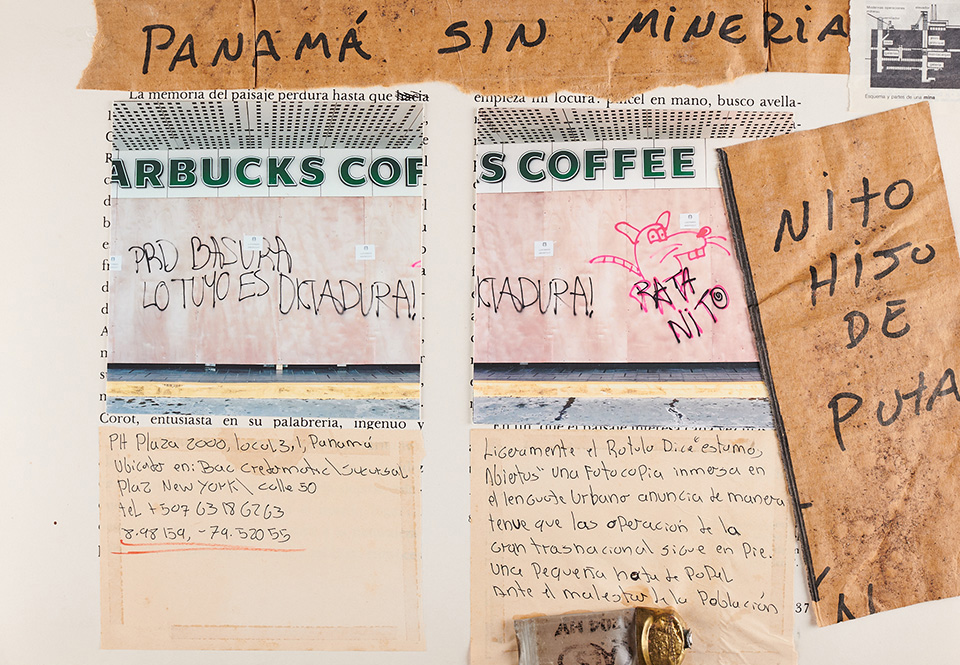 PANAMÁ SIN MINERIA
Esquema y partes de una mina
La memoria del paisaje perdura hasta que hacia
empieza mi locura: pincel en mano, busco avella-
ARBUCKS COF
PRD BASURA
LO TUYO ES DICTADURA!
S COFFEE
ICTADURA!
RATA
NITO
NITO
HIJO
DE
PUTA
Corot, entusiasta en su palabrería, ingenuo y
PH Plaza 2000, local 3,1, Panamá
Ubicados en: Bac Credomatic\ Sucursal
Plaz New York\ calle 50
tel +507 6318 6263
8.98159, -79.52055
Ligeramente el Rotulo Dice "estamos,
Abiertos" una fotocopia inmersa en
el lenguaje Urbano anuncia de manera
tenue que las operación de la
Gran trasnacional sigue en Pie.
una Pequeña hoja de Papel
Ante el malestar de la Población
37